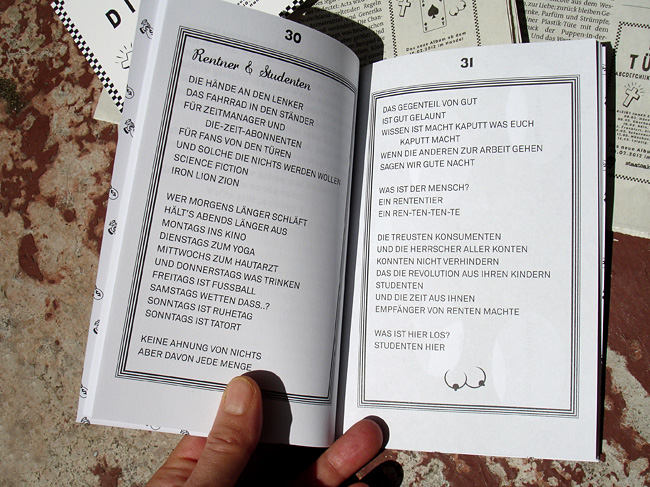 30
Rentner & Studenten
DIE HÄNDE AN DEN LENKER
DAS FAHRRAD IN DEN STÄNDER
FÜR ZEITMANAGER UND
DIE-ZEIT-ABONNENTEN
FÜR FANS VON DEN TÜREN
UND SOLCHE DIE NICHTS WERDEN WOLLEN
SCIENCE FICTION
IRON LION ZION
WER MORGENS LÄNGER SCHLÄFT
HÄLT'S ABENDS LÄNGER AUS
MONTAGS INS KINO
DIENSTAGS ZUM YOGA
MITTWOCHS ZUM HAUTARZT
UND DONNERSTAGS WAS TRINKEN
FREITAGS IST FUSSBALL
SAMSTAGS WETTEN DASS..?
SONNTAGS IST RUHETAG
SONNTAGS IST TATORT
KEINE AHNUNG VON NICHTS
ABER DAVON JEDE MENGE
31
DAS GEGENTEIL VON GUT
IST GUT GELAUNT
WISSEN IST MACHT KAPUTT WAS EUCH
KAPUTT MACHT
WENN DIE ANDEREN ZUR ARBEIT GEHEN
SAGEN WIR GUTE NACHT
WAS IST DER MENSCH?
EIN RENTENTIER
EIN REN-TEN-TEN-TE
DIE TREUSTEN KONSUMENTEN
UND DIE HERRSCHER ALLER KONTEN
KONNTEN NICHT VERHINDERN
DAS DIE REVOLUTION AUS IHREN KINDERN
STUDENTEN
UND DIE ZEIT AUS IHNEN
EMPFÄNGER VON RENTEN MACHTE
WAS IST HIER LOS?
STUDENTEN HIER